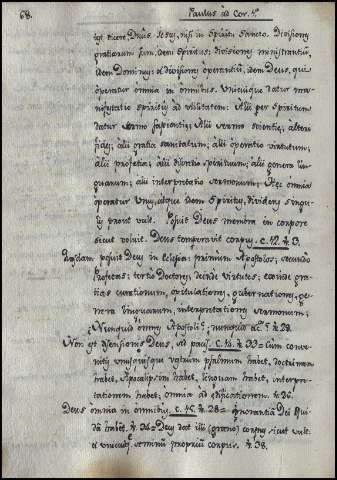 68. Paulus ad Cor. 1ª
est dicere, Dnũs Jesus, nisi in Spiritu Sancto. Divisiones
gratiarum sunt, idem Spiritus: divisiones ministrantiũ,
idem Dominus: & divisiones operantiũ, idem Deus, qui
operatur omnia in omnibus. Unicuique datur ma-
nifestatio Spiritus ad utilitatem. Alii per Spiritum
datur sermo sapientiæ; Alii sermo scientiæ; alteri
fides; alii gratia sanitatum; alii operatio virtutum;
alii profetia; alii discretio spirituum; alii genera lin-
guarum; alii interpretatio sermonum; Hæc omnia
operatur unus, atque idem Spiritus, dividens singu-
lis prout vult. Posuit Deus membra in corpore
sicut voluit. Deus temperavit corpus. c. 12. ℣. 3.
Quosdam posuit Deus in Eclesia: primum Apostolos, secundo
Profetas; tertio Doctores; deinde Virtutes; exinde gra-
tias curationum, opitulationes, gubernationes, ge-
nera linguarum, interpretationes sermonum;
Nunquid omnes Apostoli? nunquid &c. ℣. 28.
Non est dissensionis Deus, sed pacis. c. 14. ℣. 33 = Cum conve-
nitis unusquisque vestrum psalmum habet, doctrinam
habet, Apocalipsim habet, linguam habet, interpre-
tationem habet; omnia ad ædificationem. ℣. 26.
Deus omnia in omnibus. c. 15. ℣. 28 = Ignorantia Dei qui-
dã habẽt. ℣. 34 = Deus dat illi (grano) corpus sicut vult:
& unicuique seminũ proprium corpus. ℣. 38.